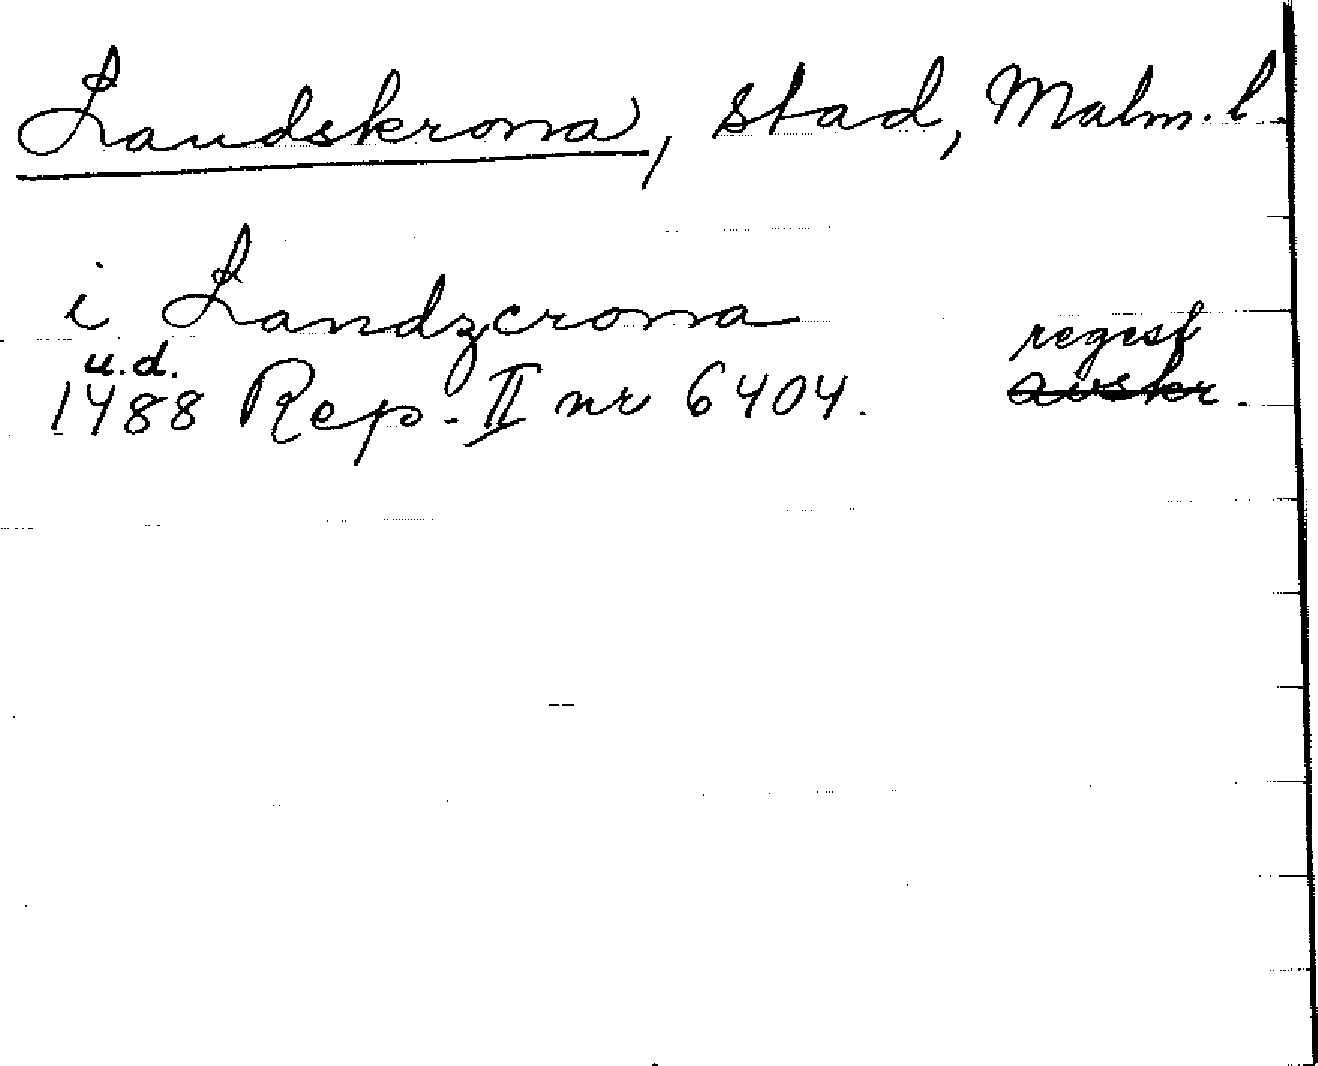 Landskrona, stad, Malm. l.
i Landzcrona
u.d. regest
1488 Rep. II nr 6404. avskr.